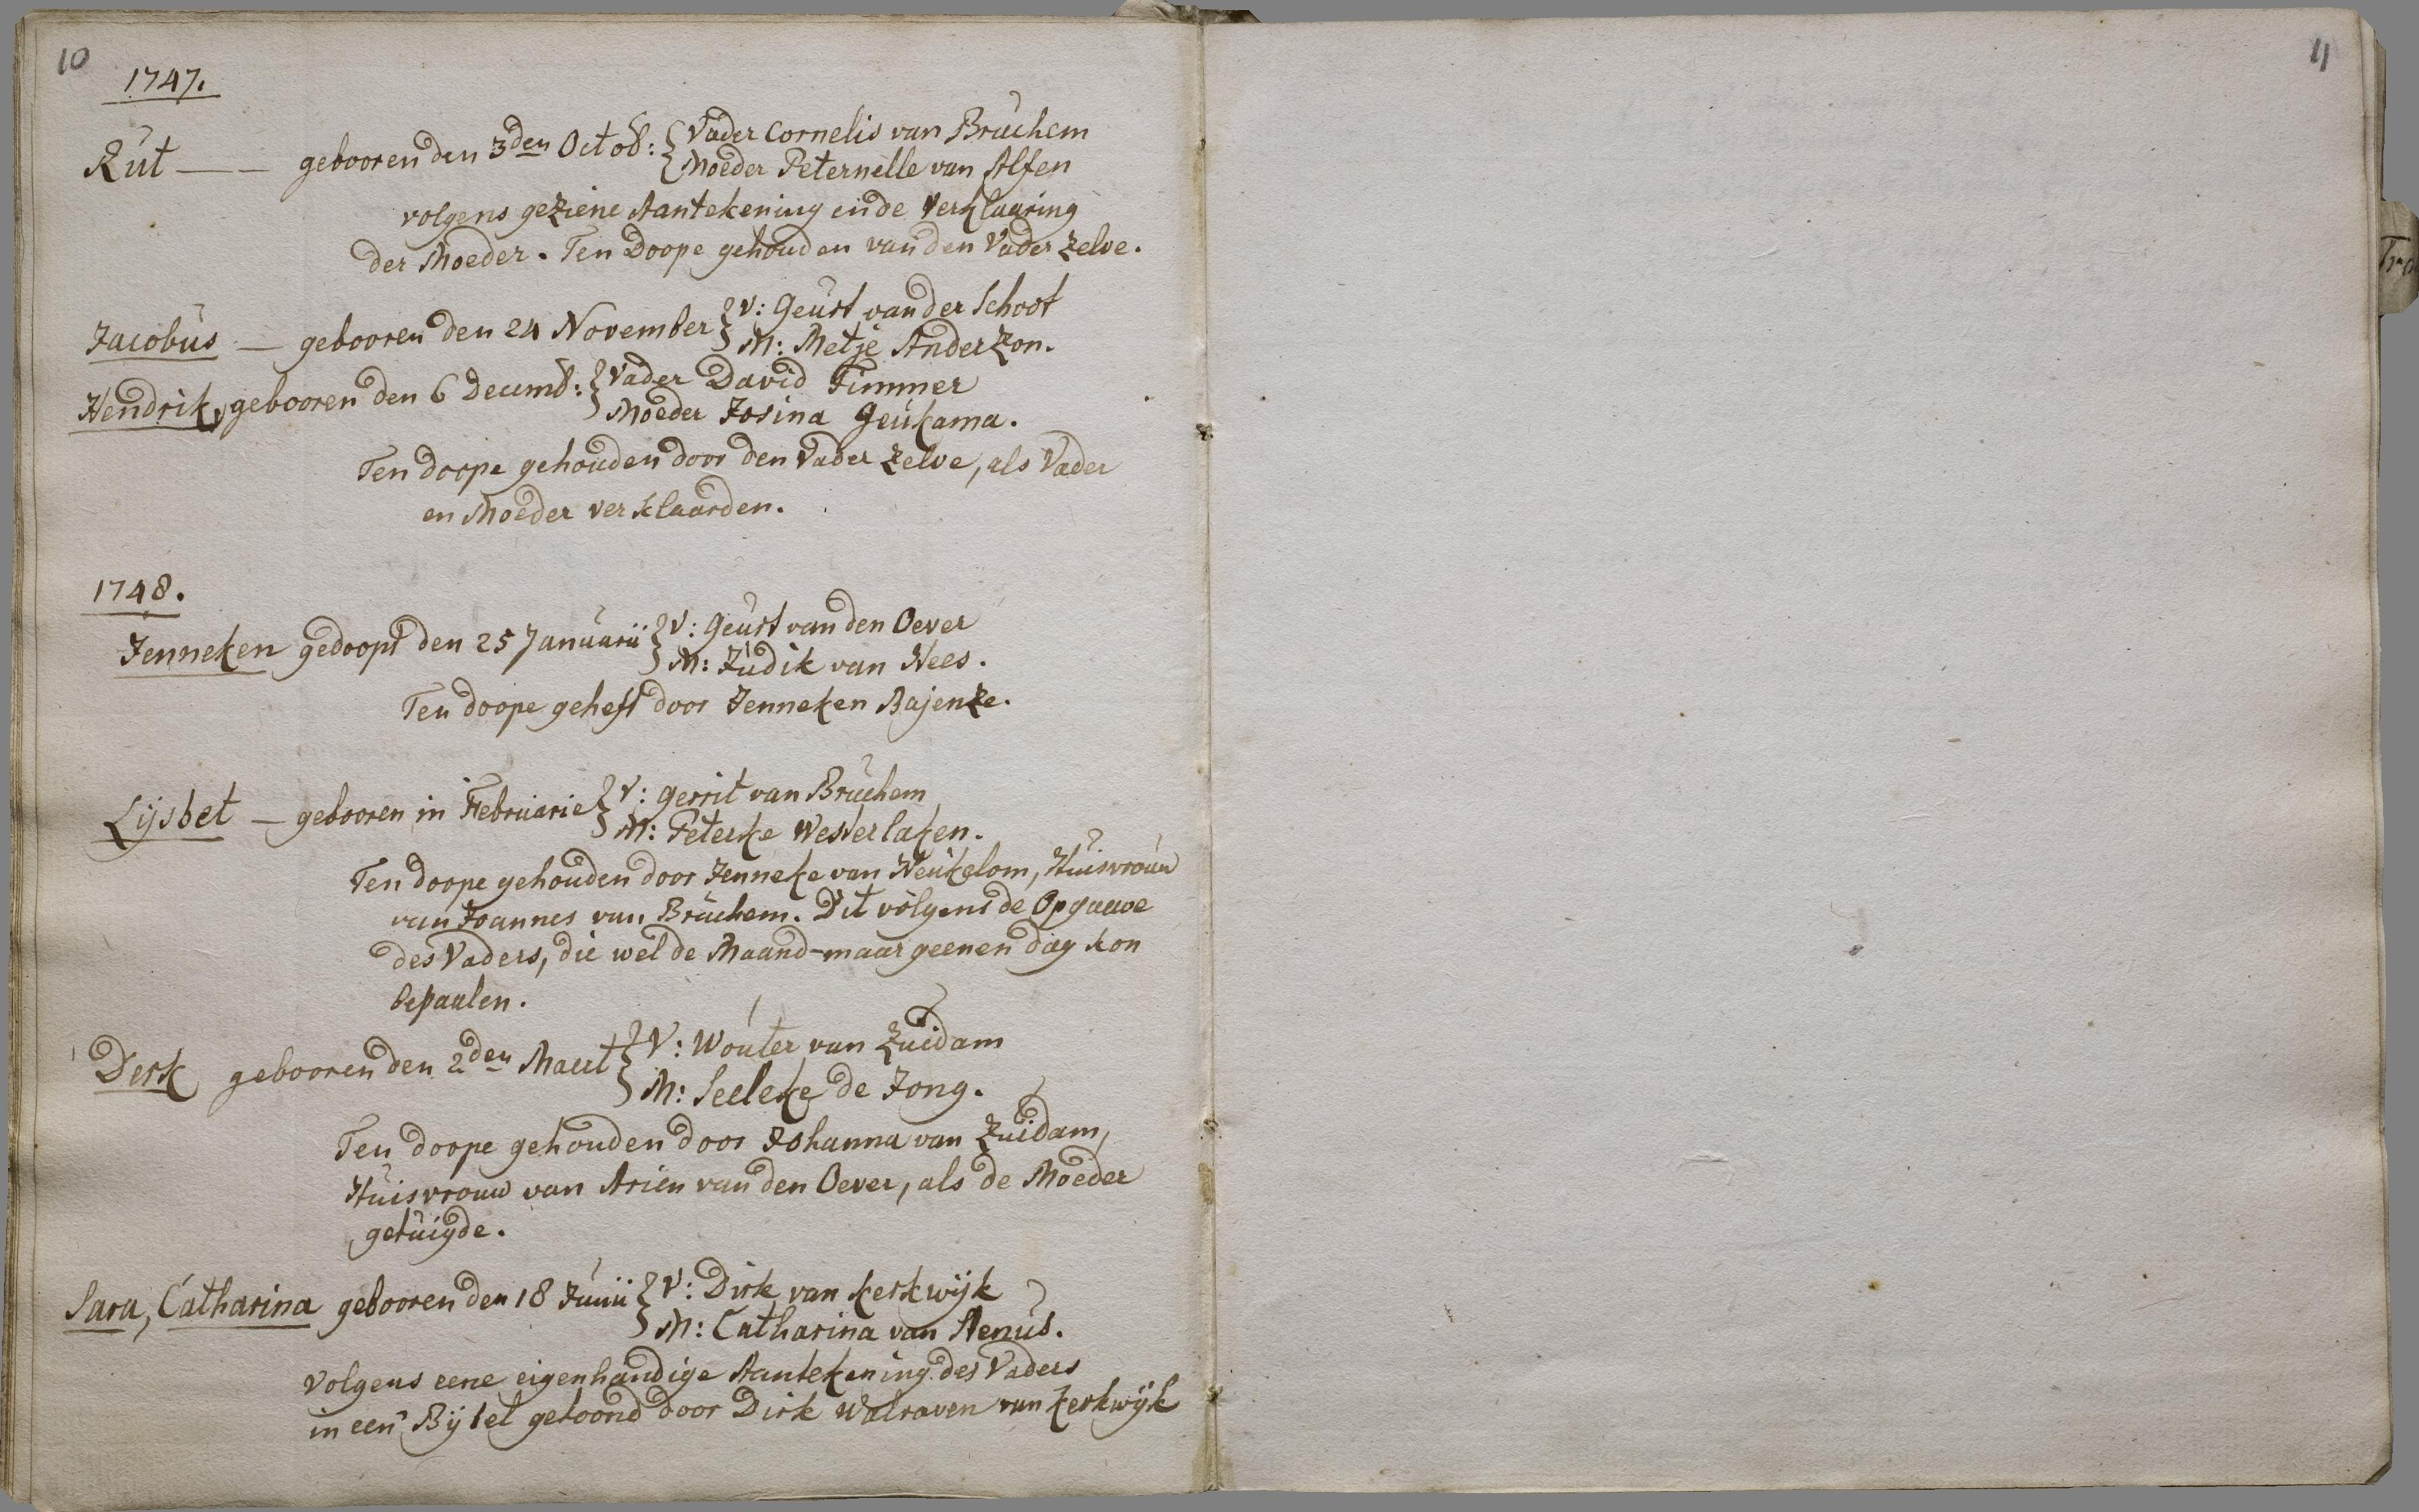 10
1747.
Rut — — gebooren den 3den Octob: { Vader Cornelis van Bruchem
Moeder Peternelle van Alfen
volgens geziene Aantekening ende Verklaaring
der Moeder. Ten Doope gehouden van den Vader zelve.
Jacobus — gebooren den 24 November { V: Geurt van der Schoot
M: Metje Anderzon.
Hendrik, gebooren den 6 Decemb: { Vader David Timmer
Moeder Josina Geukama.
Ten doope gehouden door den Vader zelve, als Vader
en Moeder verklaarden.
1748.
Jenneken gedoopt den 25 Januarii { V: Geurt van den Oever
M: Judik van Nees.
Ten doope geheft door Jenneken Bajenze.
Lijsbet — gebooren in Februarie { V: Gerrit van Bruchem
M: Peterke Westerlaken.
Ten doope gehouden door Jenneke van Neukelom, Huisvrouw
van Joannes van Bruchem. Dit volgens de Opgaave
des Vaders, die wel de Maand - maar geenen dag kon
bepaalen.
Derk gebooren den 2den Maert { V: Wouter van Zuidam
M: Seeleke de Jong.
Ten doope gehouden door Johanna van Zuidam,
Huisvrouw van Arien van den Oever, als de Moeder
getuigde.
Sara, Catharina gebooren den 18 Junii { V: Dirk van Kerkwijk
M: Catharina van
volgens eene eigenhandige Aantekening des Vaders
in een Bijbel getoond door Dirk Walraven van Kerkwijk
11